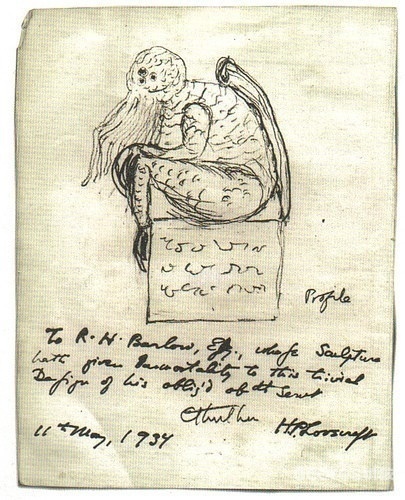 Profile
To R. H. Barlow, Eſq., whoſe Sculpture
hath given Immortality to this trivial
Deſign of his oblig'd obt Servt
Cthulhu H.P. Lovecraft
11th May, 1934